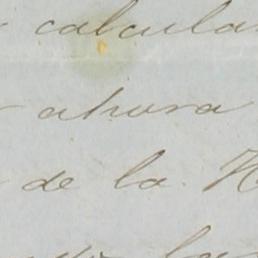 calcula
ahora
de la H